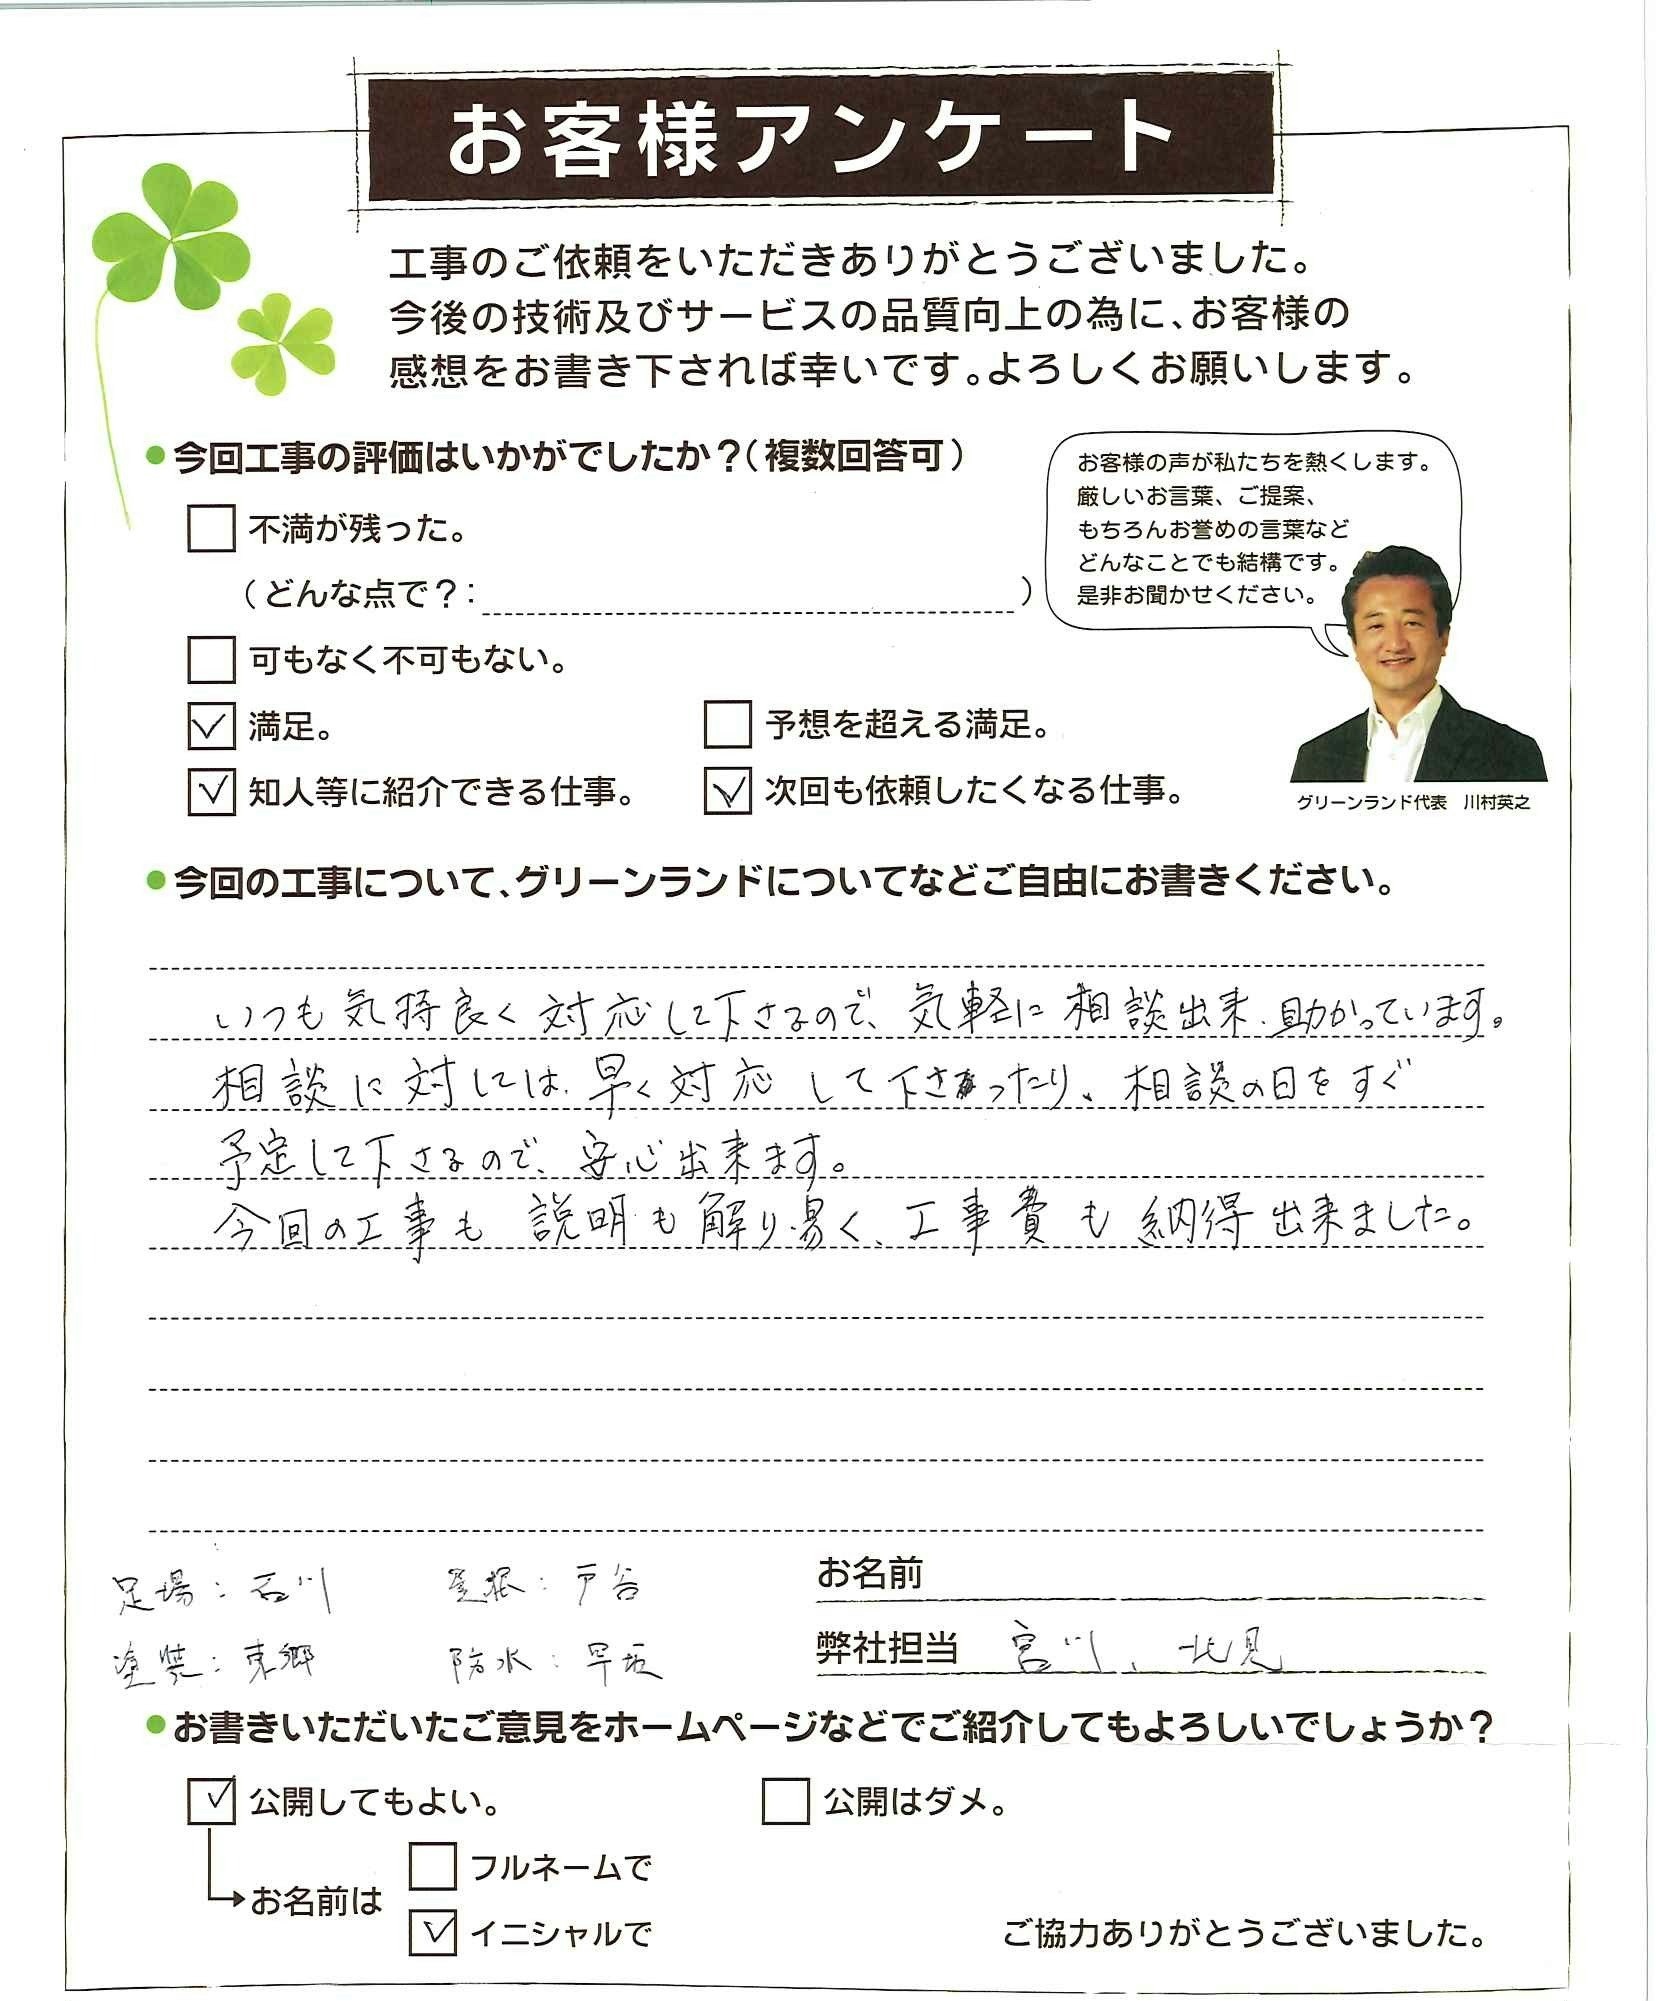 お客様アンケート
工事のご依頼をいただきありがとうございました。
今後の技術及びサービスの品質向上の為に、お客様の
感想をお書き下されば幸いです。よろしくお願いします。
●今回工事の評価はいかがでしたか？（複数回答可）
不満が残った。
（どんな点で？：　）
可もなく不可もない。
満足。
予想を超える満足。
知人等に紹介できる仕事。
次回も依頼したくなる仕事。
お客様の声が私たちを熱くします。
厳しいお言葉、ご提案、
もちろんお誉めの言葉など
どんなことでも結構です。
是非お聞かせください。
グリーンランド代表　川村英之
●今回の工事について、グリーンランドについてなどご自由にお書きください。
いつも気持良く対応して下さるので、気軽に相談出来、助かっています。
相談に対しては、早く対応して下さったり、相談の日をすぐ
予定して下さるので、安心出来ます。
今回の工事も説明も解り易く、工事費も納得出来ました。
足場：石川
屋根：戸谷
塗装：東郷
防水：早坂
お名前
弊社担当　宮川、北見
●お書きいただいたご意見をホームページなどでご紹介してもよろしいでしょうか？
公開してもよい。
公開はダメ。
お名前は
フルネームで
イニシャルで
ご協力ありがとうございました。